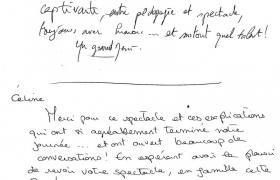 captivante, entre pédagogie et spectacle,
toujours avec humour ... et surtout quel talent!
Un grand
Céline
Merci pour ce spectacle et ces explications
qui ont si agréablement terminé notre
journée ... et ont ouvert beaucoup de
conversations! En espérant avoir le plaisir
de revoir votre spectacle, en famille cette